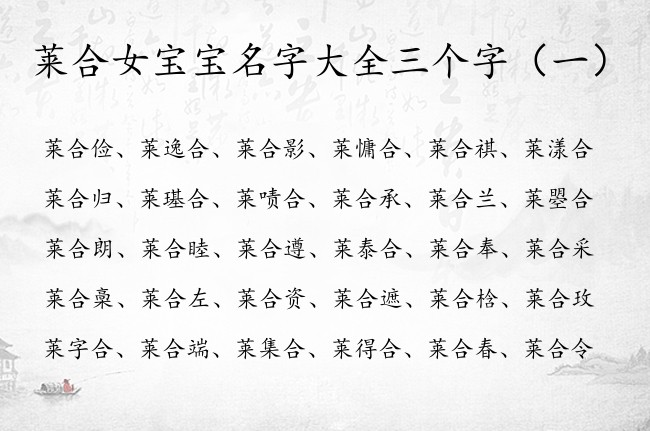 莱合女宝宝名字大全三个字（一）
莱合俭、莱逸合、莱合影、莱慵合、莱合祺、莱漾合
莱合归、莱琪合、莱啧合、莱合承、莱合兰、莱曌合
莱合朗、莱合睦、莱合遵、莱泰合、莱合奉、莱合采
莱合槀、莱合左、莱合资、莱合遮、莱合桧、莱合玫
莱字合、莱合端、莱集合、莱得合、莱合春、莱合令